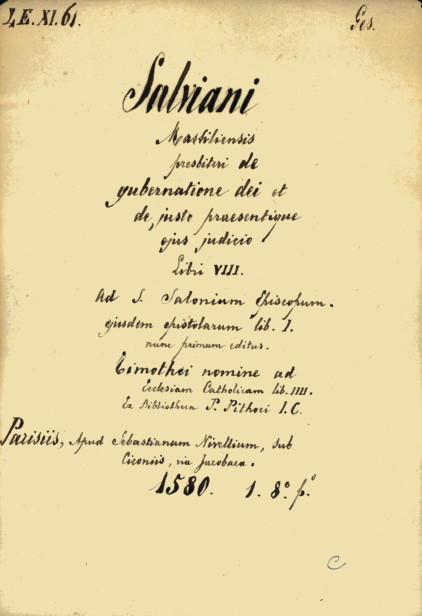 LE.XI.61.
Ges.
Salviani
Massiliensis
presbiteri de
gubernatione dei et
de justo praesentique
ejus judicio
Libri VIII.
Ad S. Salonium Episcopum.
ejusdem epistolarum lib. I.
nunc primum editus.
Timothei nomine ad
Ecclesiam Catholicam lib. IIII.
Ex Bibliotheca P. Pithoei I.C.
Parisiis, Apud Sebastianum Nivellium, sub
Ciconiis, via Jacobaea.
1580. 1. 8º. pº.
C